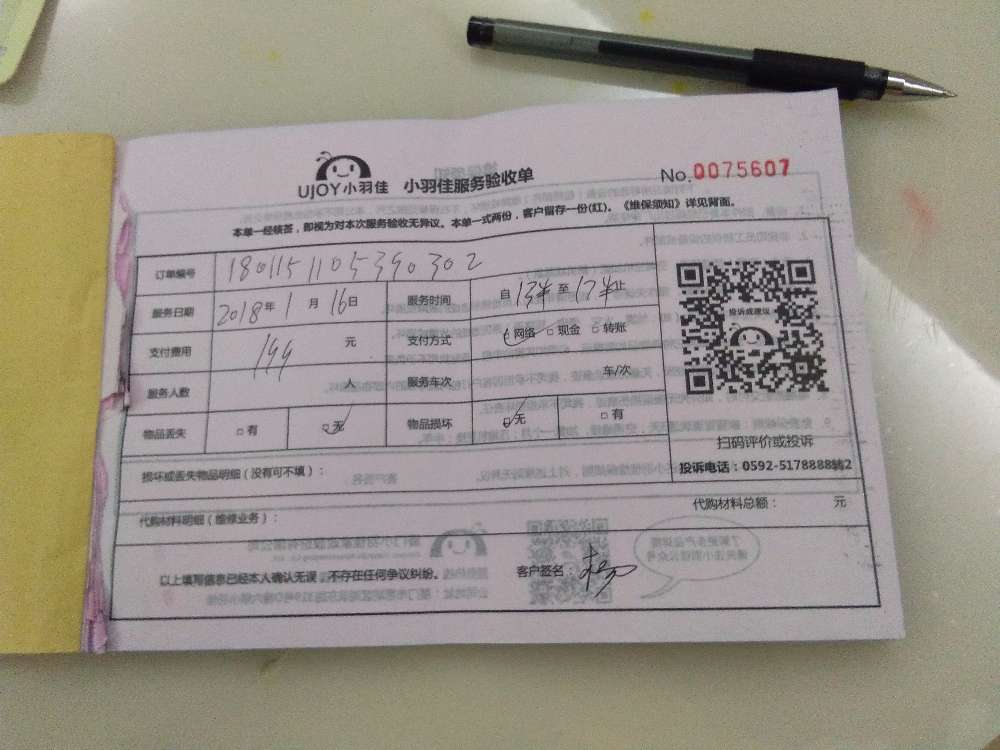 UJOY小羽佳 小羽佳服务验收单 No.0075607
本单一经核签，即视为对本次服务验收无异议。本单一式两份，客户留存一份(红)。《维保须知》详见背面。
订单编号 1801151105390302
服务日期 2018年1月16日 服务时间 自13半至17半止
支付费用 199元 支付方式 网络 现金 转账
服务人数 人 服务车次 车/次
物品丢失 有 无 物品损坏 无 有
投诉或建议
扫码评价或投诉
投诉电话：0592-5178888转2
损坏或丢失物品明细（没有可不填）：
代购材料明细（维修业务）： 代购材料总额： 元
以上填写信息已经本人确认无误，不存在任何争议纠纷。 客户签名：